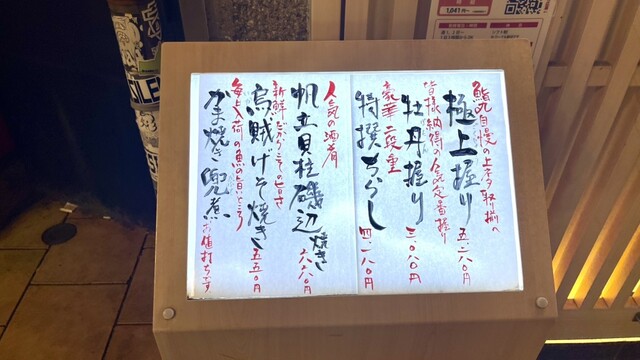 鮨丸自慢の上ネタ取り揃へ
極上握り 五.二八〇円
皆様納得の人気定番握り
牡丹握り 三.〇八〇円
豪華二段の重
特撰ちらし 四.二八〇円
人気の酒肴
帆立貝柱磯辺焼き 六八〇円
新鮮だからこその旨さ
烏賊げそ焼き 五五〇円
毎日入荷の魚の旨いところ
かま焼き 兜煮
お値打ちです
1,041円~